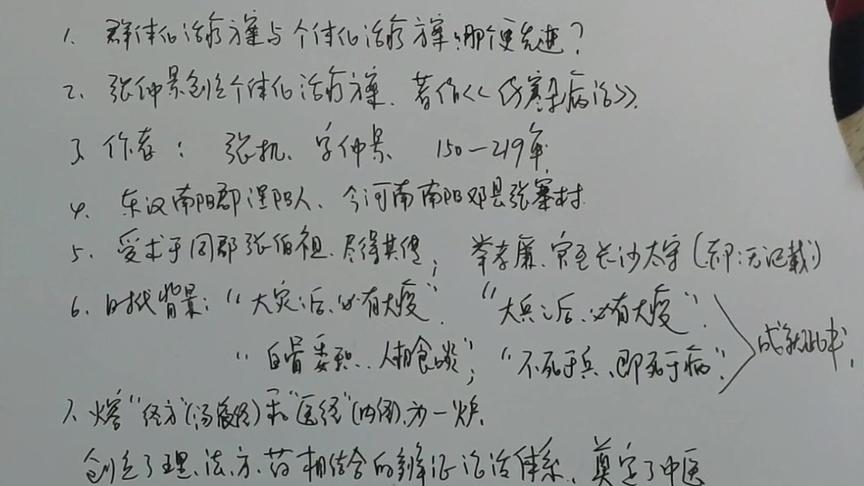 1、群体化治疗方案与个体化治疗方案哪个更先进？
2、张仲景创立个体化治疗方案、著作<<伤寒杂病论>>.
3、作者：张机、字仲景 150—219年
4、东汉南阳郡涅阳人、今河南南阳邓县张寨村
5、受术于同郡张伯祖、尽得其传；举孝廉、官至长沙太守(,无记载)
6、时代背景："大灾之后、必有大疫"."大兵之后、必有大疫".
"白骨委积..人相食啖"；"不死于兵、即死于病". 成就此书.
7、熔"经方"(汤液经)和"医经"(内)为一炉.
创立了理、法、方、药相结合的辨证论治体系、奠定了中医